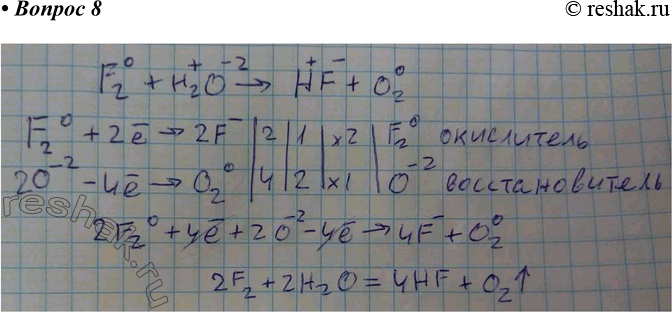 • Вопрос 8
© reshak.ru
F₂⁰ + H₂⁺O⁻² → H⁺F⁻ + O₂⁰
F₂⁰ + 2ē → 2F⁻ | 2 | 1 | ×2 | F₂⁰ окислитель
2O⁻² - 4ē → O₂⁰ | 4 | 2 | ×1 | O⁻² восстановитель
reshak.ru
2F₂⁰ + 4ē + 2O⁻² - 4ē → 4F⁻ + O₂⁰
2F₂ + 2H₂O = 4HF + O₂↑